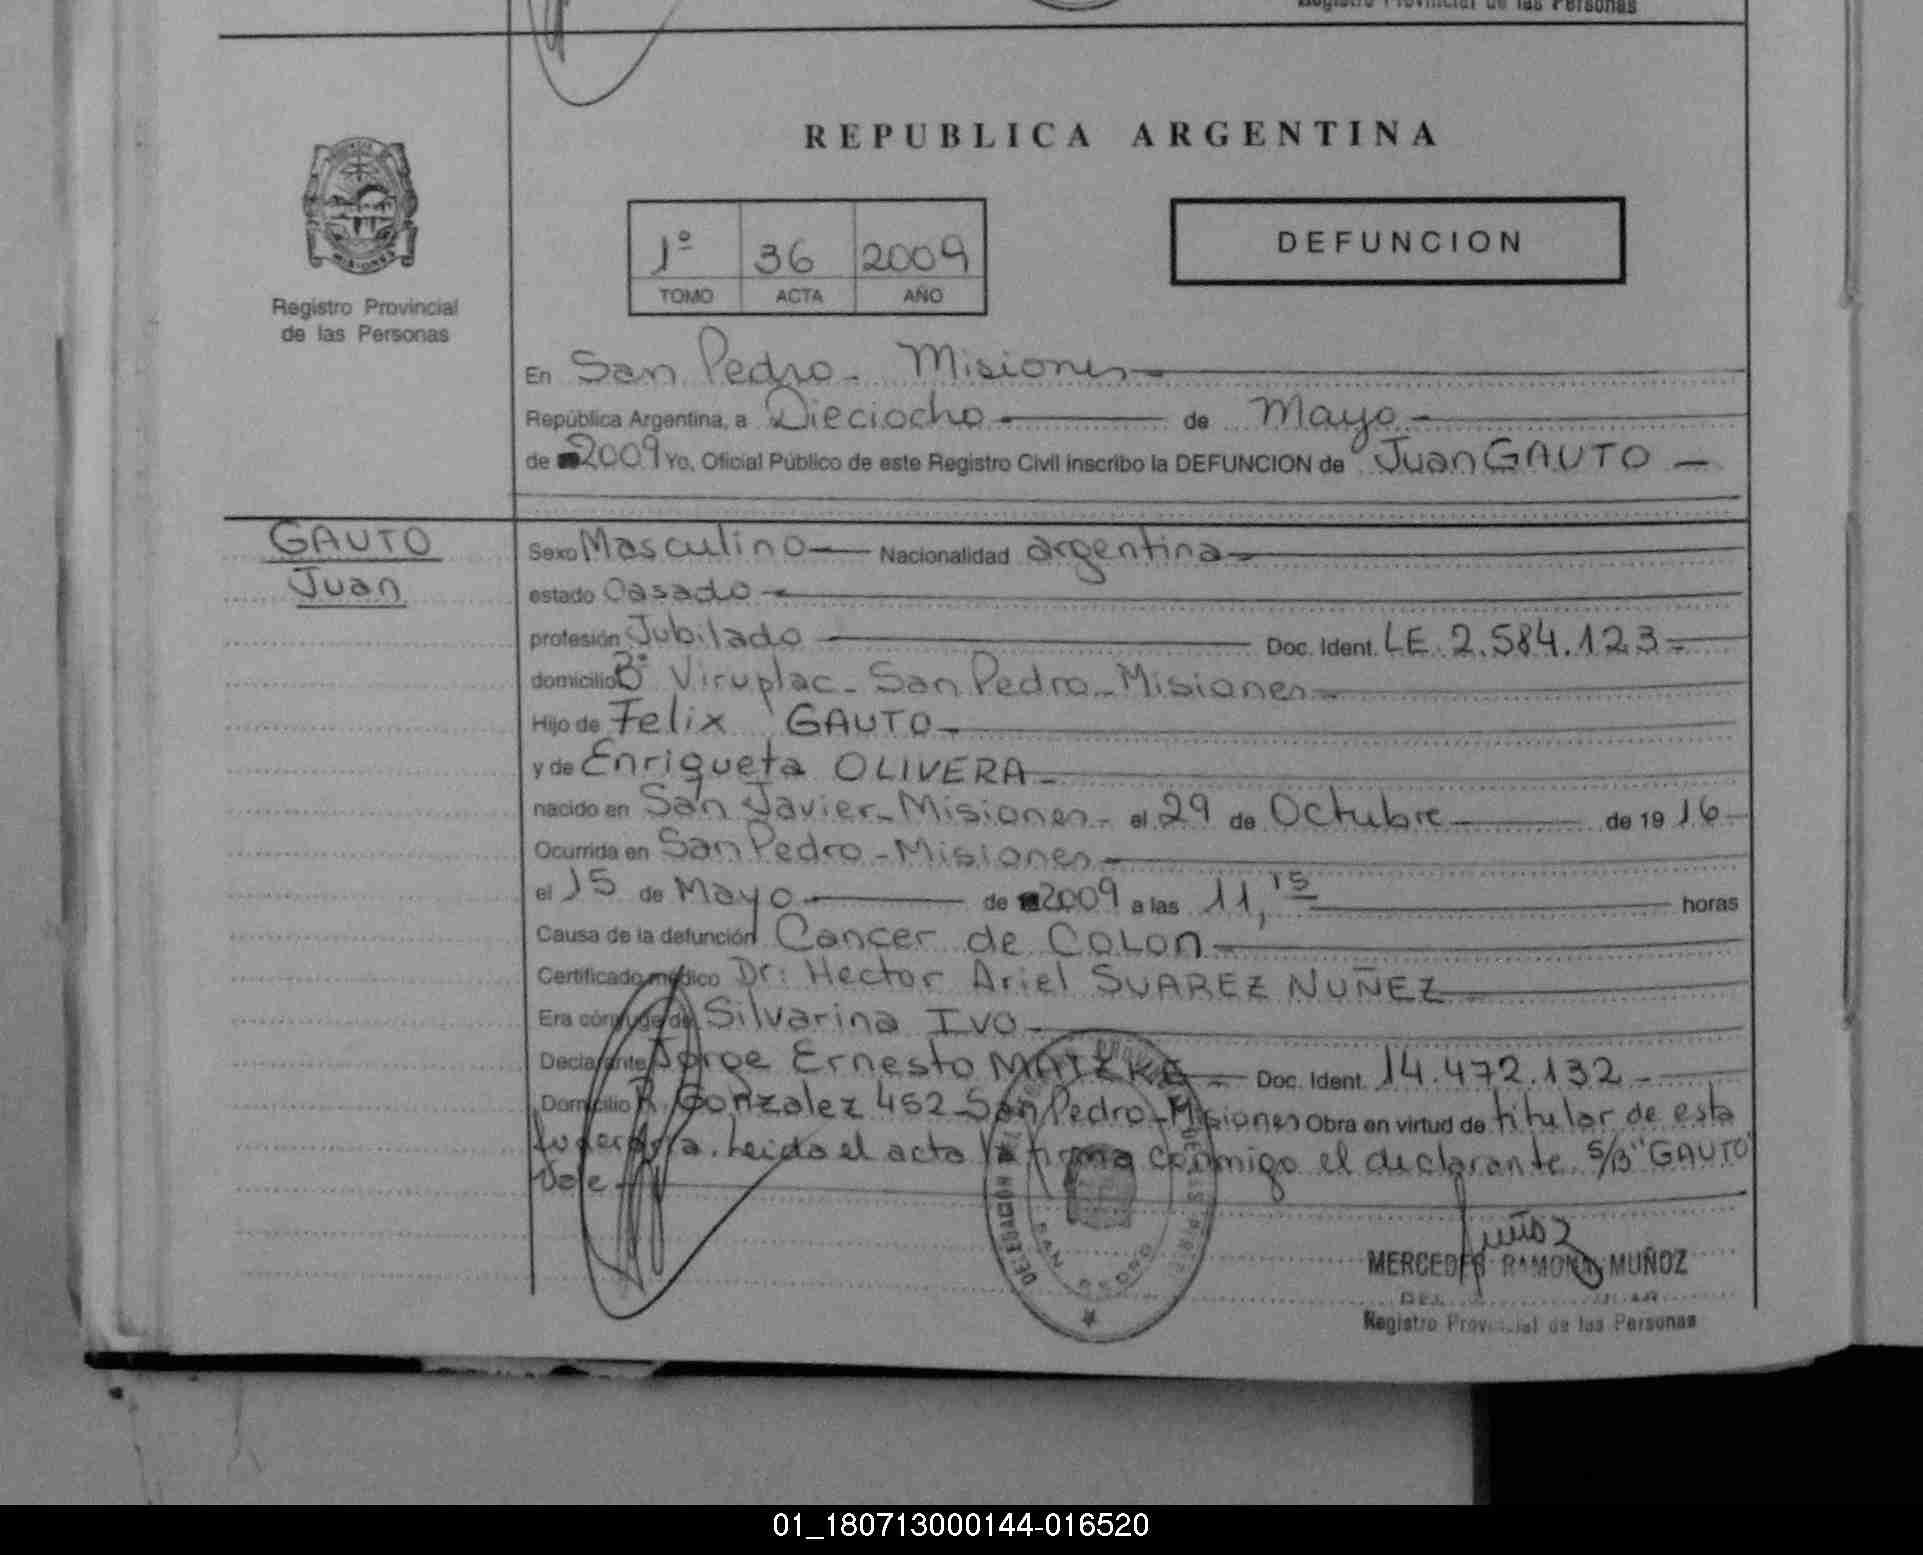 Registro Provincial de las Personas
REPUBLICA ARGENTINA
MISIONES
Registro Provincial
de las Personas
1º 36 2009
TOMO ACTA AÑO
DEFUNCION
En San Pedro - Misiones
República Argentina, a Dieciocho de Mayo
de 2009 Yo, Oficial Público de este Registro Civil inscribo la DEFUNCION de Juan GAUTO
GAUTO
Juan
Sexo Masculino Nacionalidad argentina
estado Casado
profesión Jubilado Doc. Ident. LE. 2.584.123
domicilio Bº Viruplac - San Pedro - Misiones
Hijo de Felix GAUTO
y de Enriqueta OLIVERA
nacido en San Javier - Misiones - el 29 de Octubre de 19 16
Ocurrida en San Pedro - Misiones
el 15 de Mayo de 2009 a las 11,15 horas
Causa de la defunción Cancer de COLON
Certificado médico Dr: Hector Ariel SUAREZ NUÑEZ
Era cónyuge de Silvarina IVO
Declarante Jorge Ernesto MATZKE Doc. Ident. 14.472.132
Domicilio R. Gonzalez 452 San Pedro - Misiones Obra en virtud de titular de esta
. Leida el acta la firma conmigo el declarante. S/B "GAUTO"
Vale
DELEGACIÓN
SAN PEDRO
MERCEDES RAMONA MUÑOZ
Registro Provincial de las Personas
01_180713000144-016520